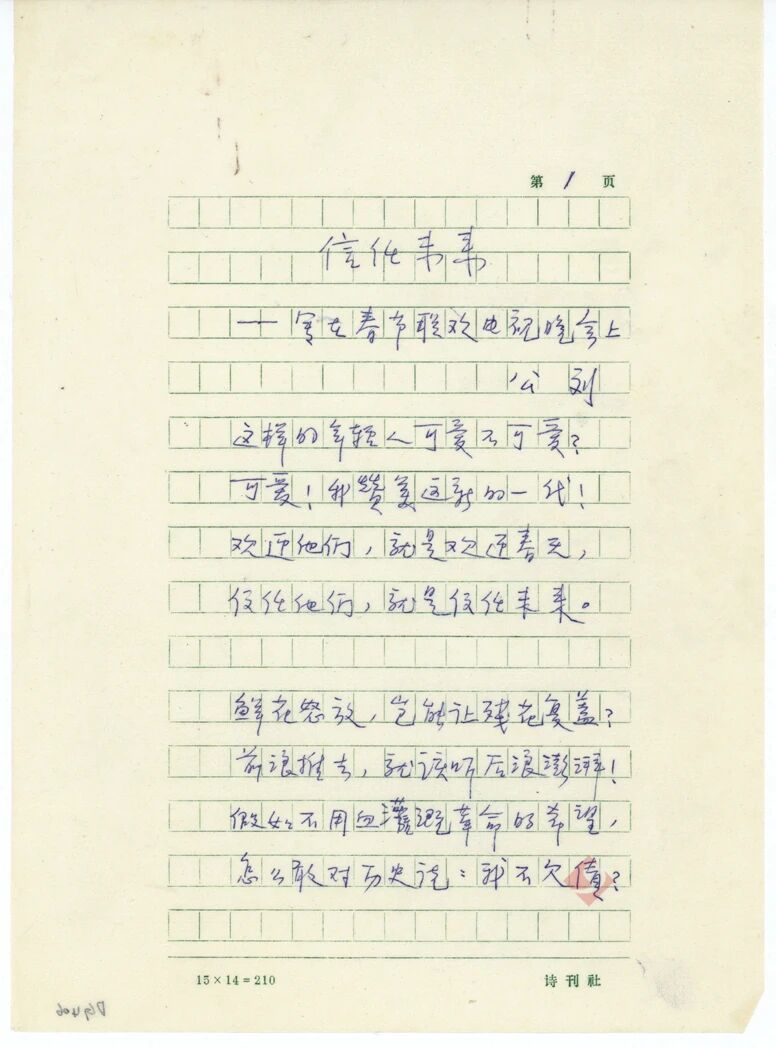 第 1 页
信任未来
——写在春节联欢电视晚会上
公刘
这样的年轻人可爱不可爱？
可爱！我赞美这新的一代！
欢迎他们，就是欢迎春天，
信任他们，就是信任未来。
鲜花怒放，岂能让残花复盖？
前浪推去，就该听后浪澎湃！
假如不用血灌溉革命的希望，
怎么敢对历史说：我不欠债？
15×14=210
诗刊社